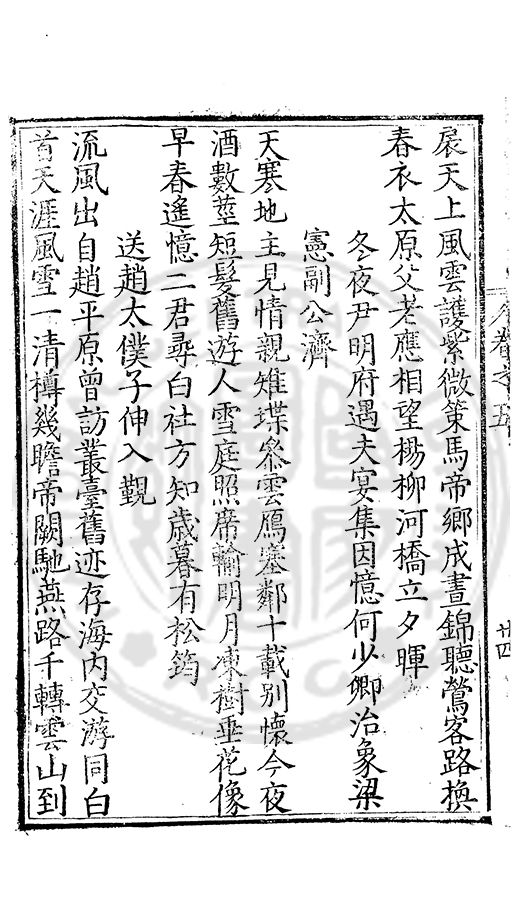 扆天上風雲護紫微策馬帝鄉成晝錦聽鶯客路換
春衣太原父老應相望楊柳河橋立夕暉
冬夜尹明府遇夫宴集因憶何少卿治象梁
憲副公濟
天寒地主見情親雉堞叅雲鴈塞鄰十載别懷今夜
酒數莖短髮舊遊人雪庭照席輸明月凍樹垂花像
早春遙憶二君尋白社方知歳暮有松筠
送趙太僕子伸入覲
流風出自趙平原曾訪叢臺舊迹存海内交游同白
首天涯風雪一清樽幾瞻帝闕馳燕路千轉雲山到
卷之五
廿四